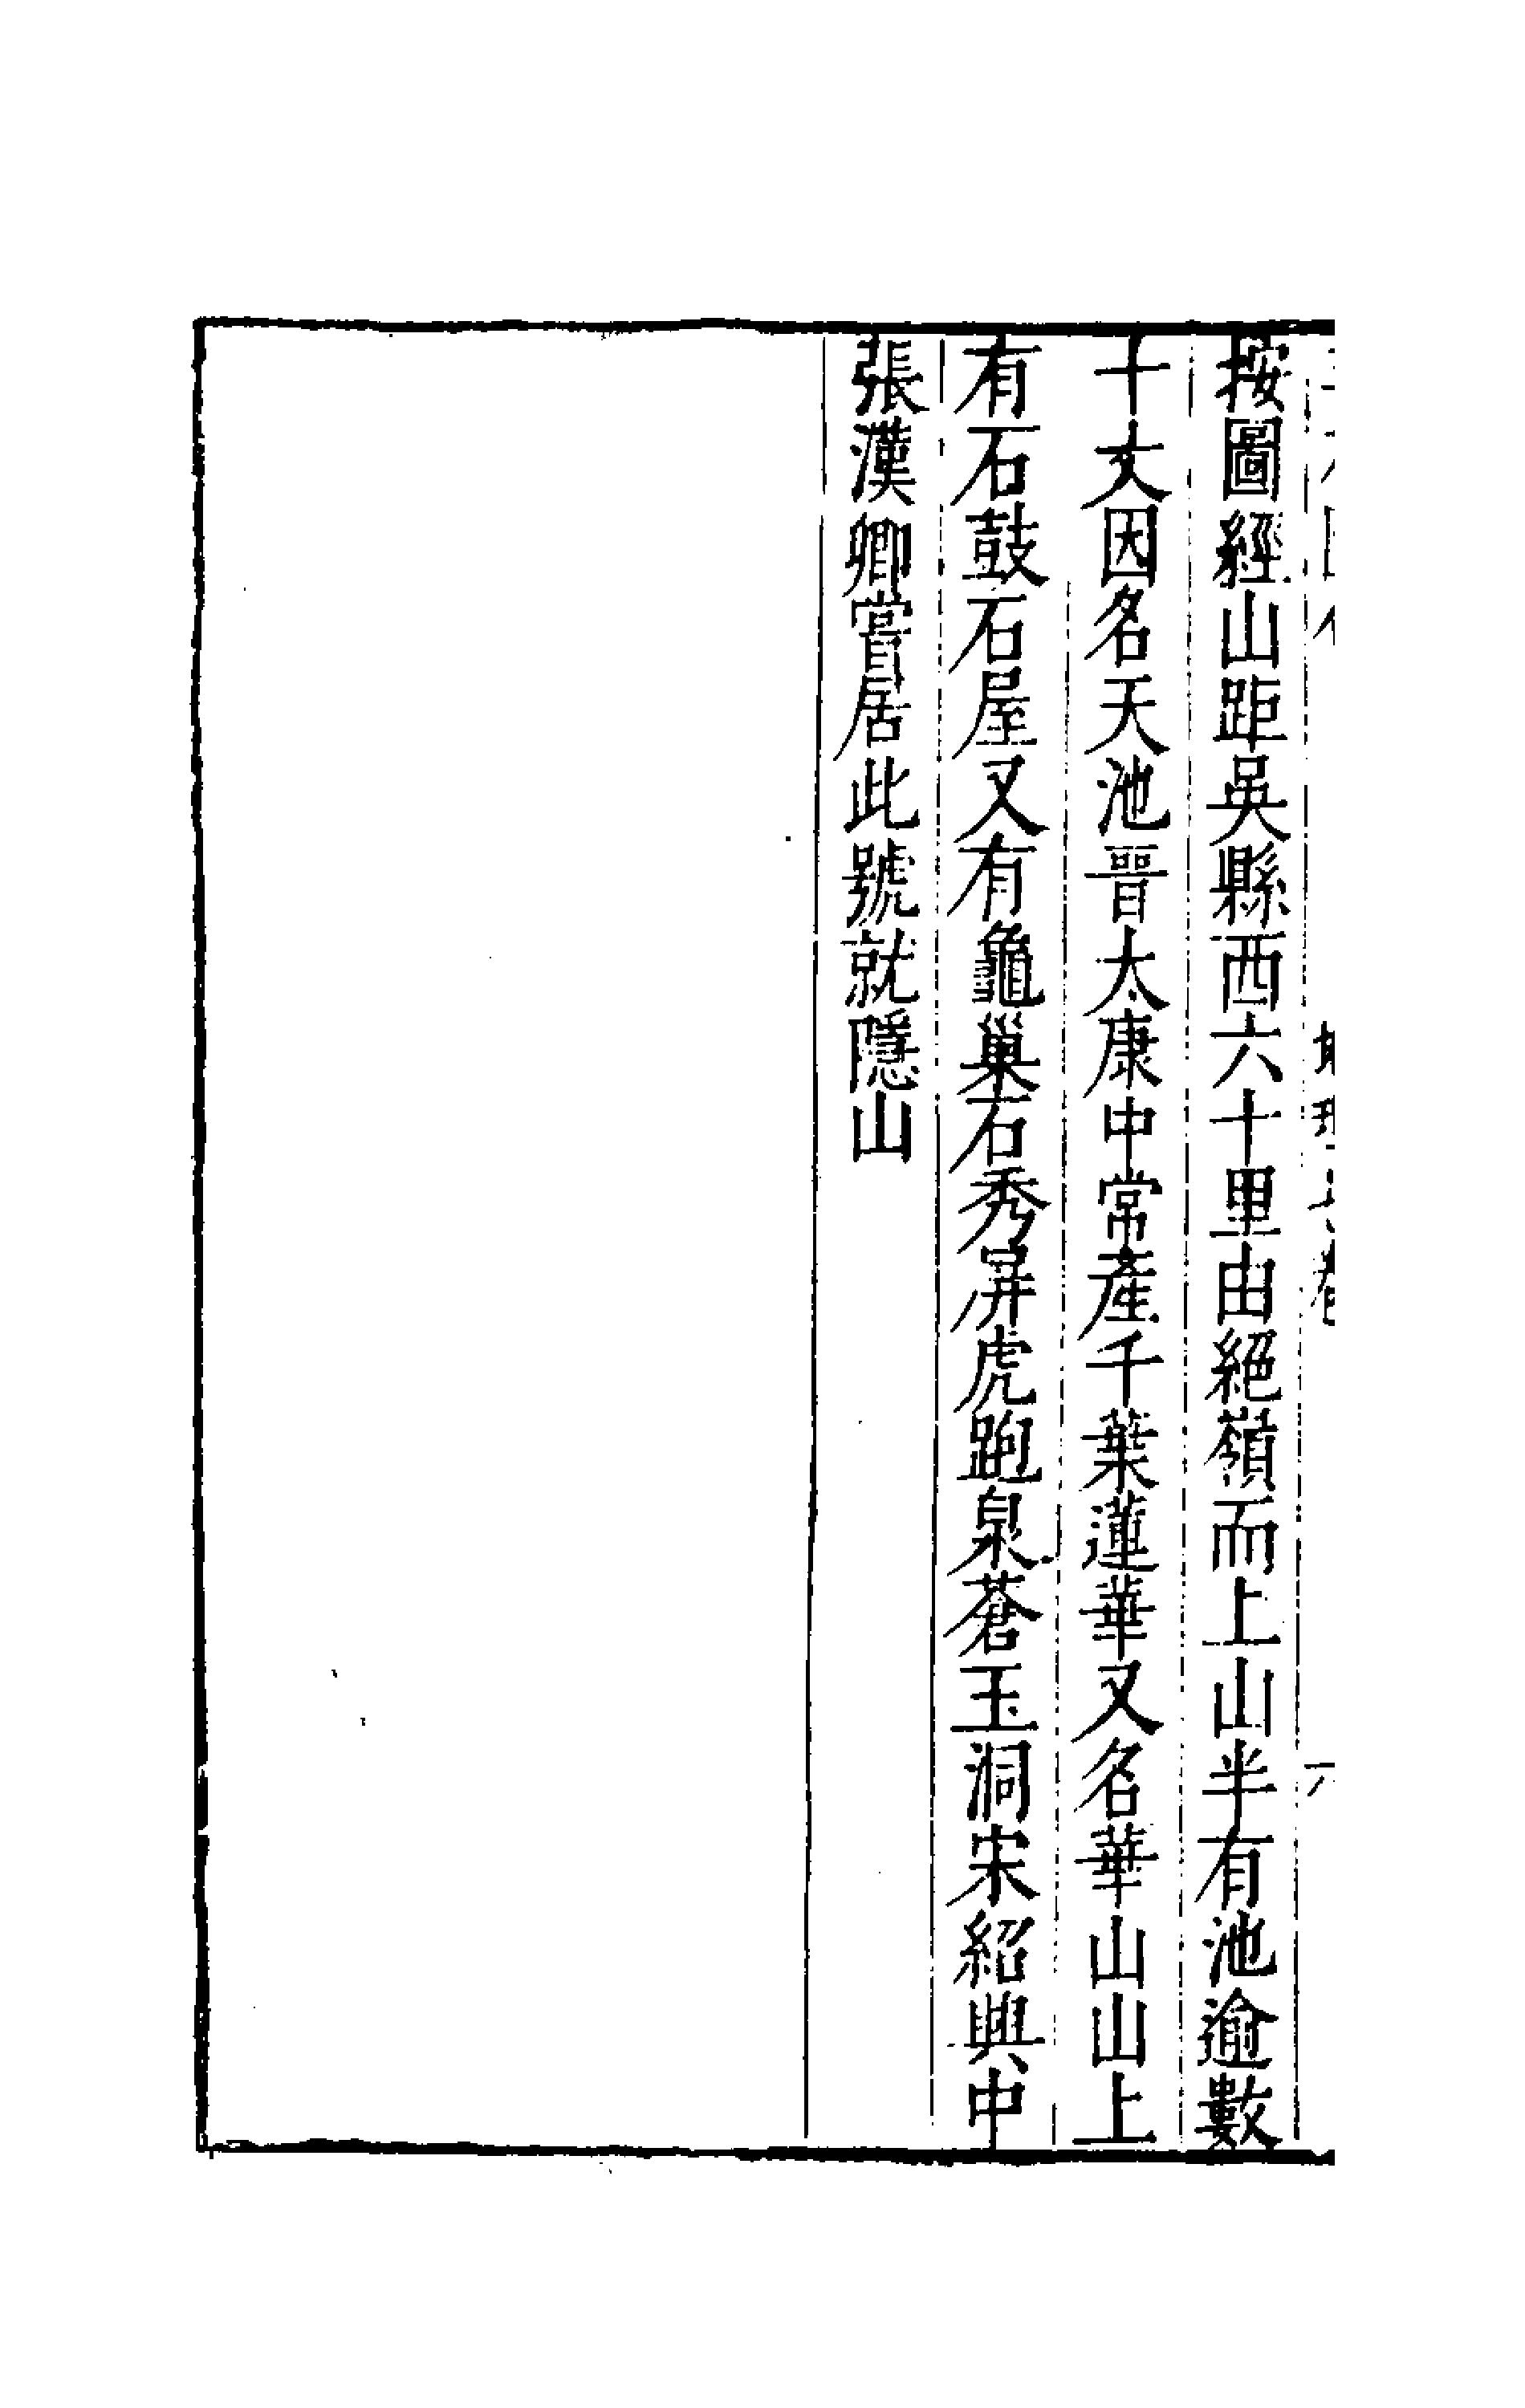 按圖經山距吳縣西六十里由絕嶺而上山半有池逾數
十丈因名天池晉太康中常產千葉蓮華又名華山山上
有石鼓石屋又有龜巢石秀屏虎跑泉蒼玉洞宋紹興中
張漢卿嘗居此號就隱山